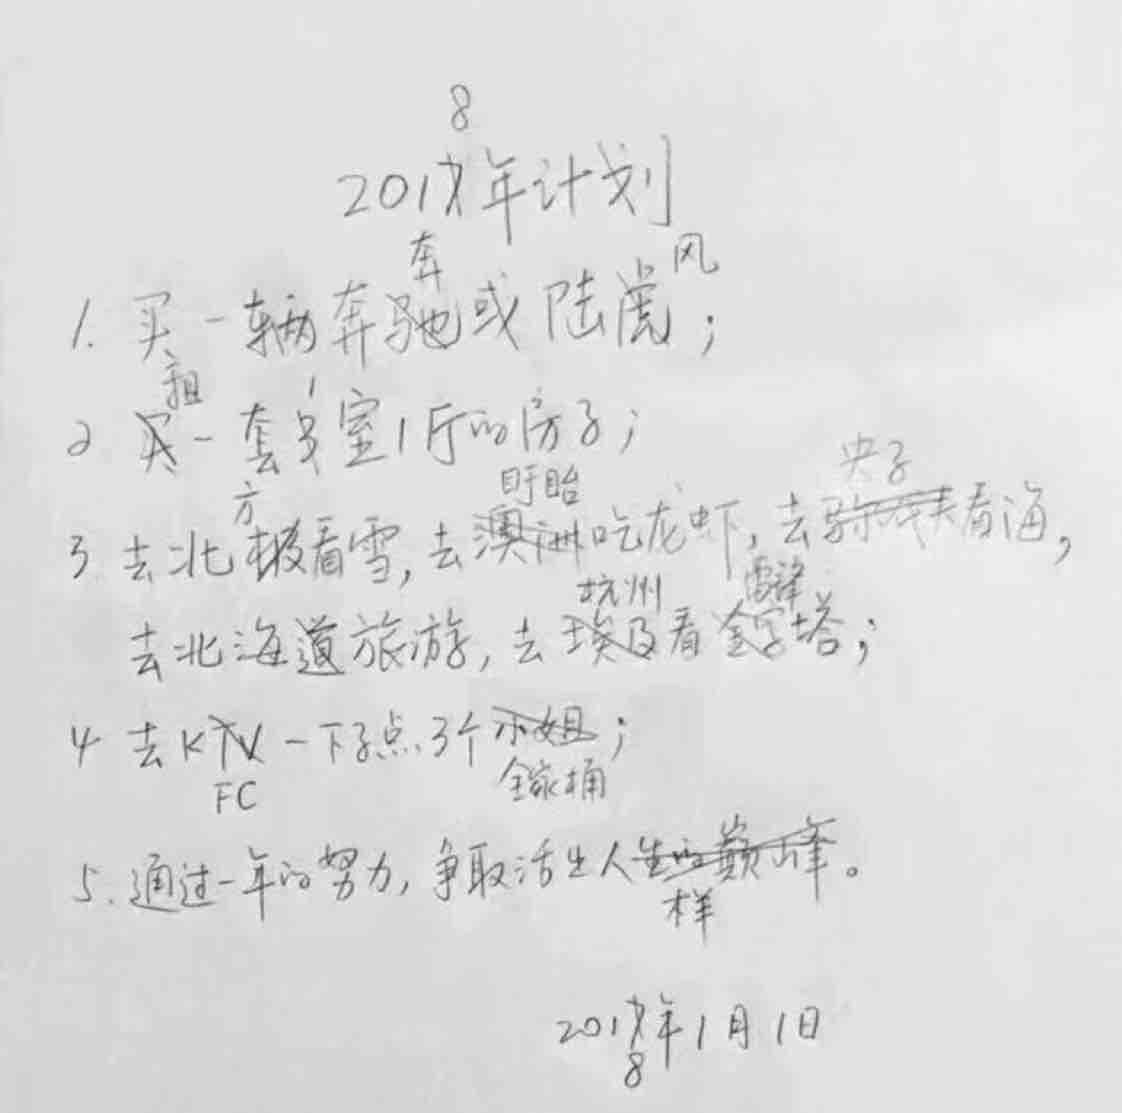 8
2017年计划
奔 风
1. 买一辆奔驰或陆虎;
租 1
2 买一套3室1厅的房子;
方 盱眙 央子
3 去北极看雪, 去澳洲吃龙虾, 去看海,
杭州 雷锋
去北海道旅游, 去埃及看金字塔;
4 去KTV一下子点3个小姐;
FC 全家桶
5. 通过一年的努力, 争取活出人生的巅峰。
样
2017年1月1日
8